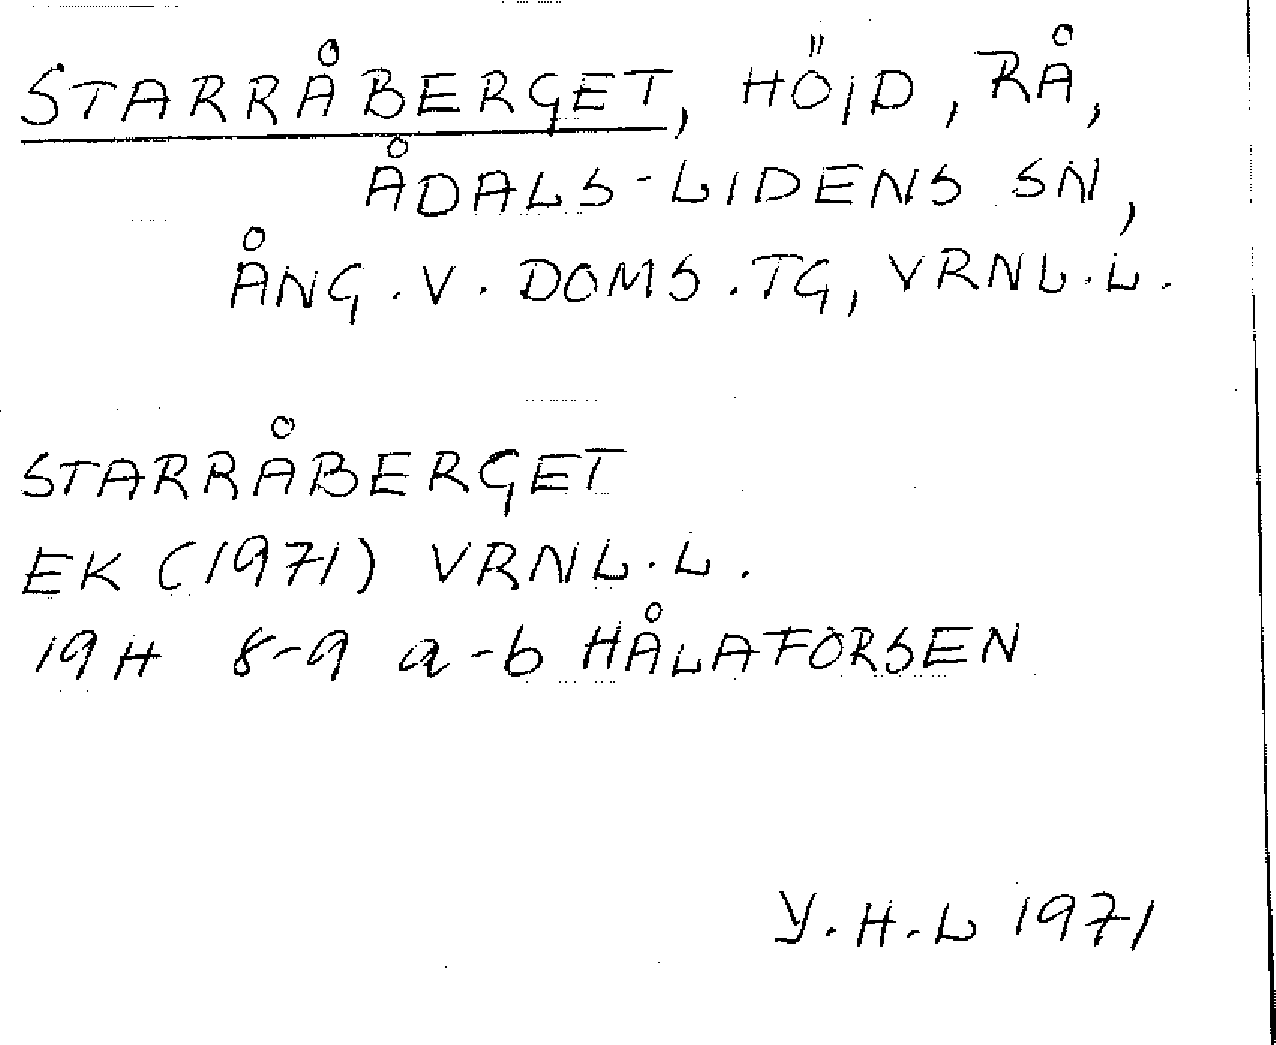 STARRÅBERGET, HÖJD, RÅ,
ÅDALS-LIDENS SN,
ÅNG. V. DOMS. TG, VRNL. L.
STARRÅBERGET
EK (1971) VRNL. L.
19H 8-9 a-b HÅLAFORSEN
Y. H. L 1971